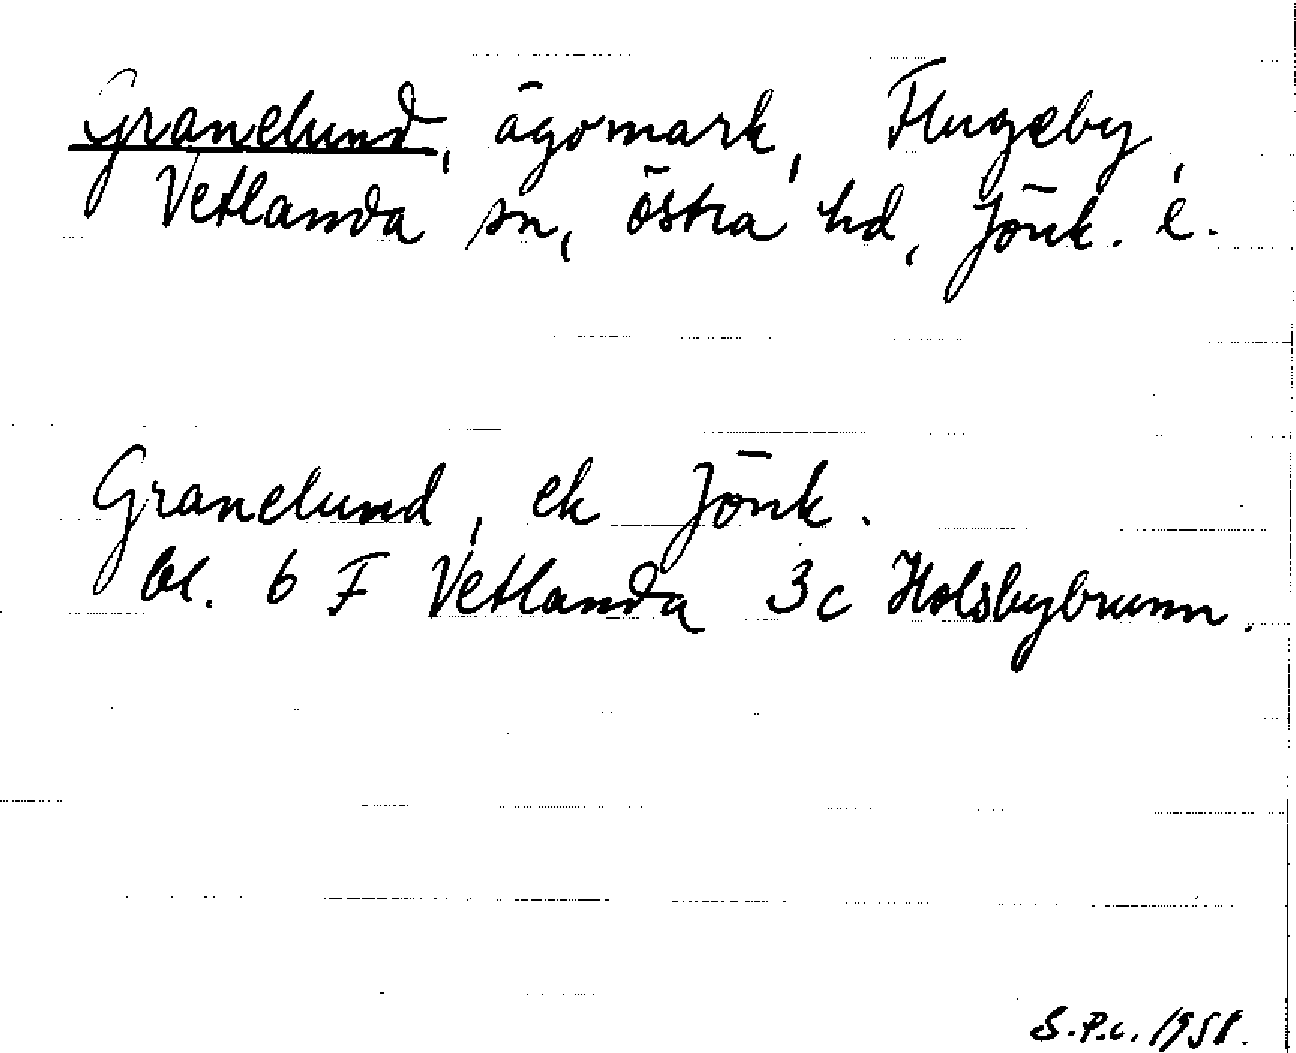 Granelund, ägomark, Flugeby,
Vetlanda sn, östra hd, Jönk. l.
Granelund, ek Jönk.
bl. 6 F Vetlanda 3c Holsbybrunn.
S.P.C. 1958.